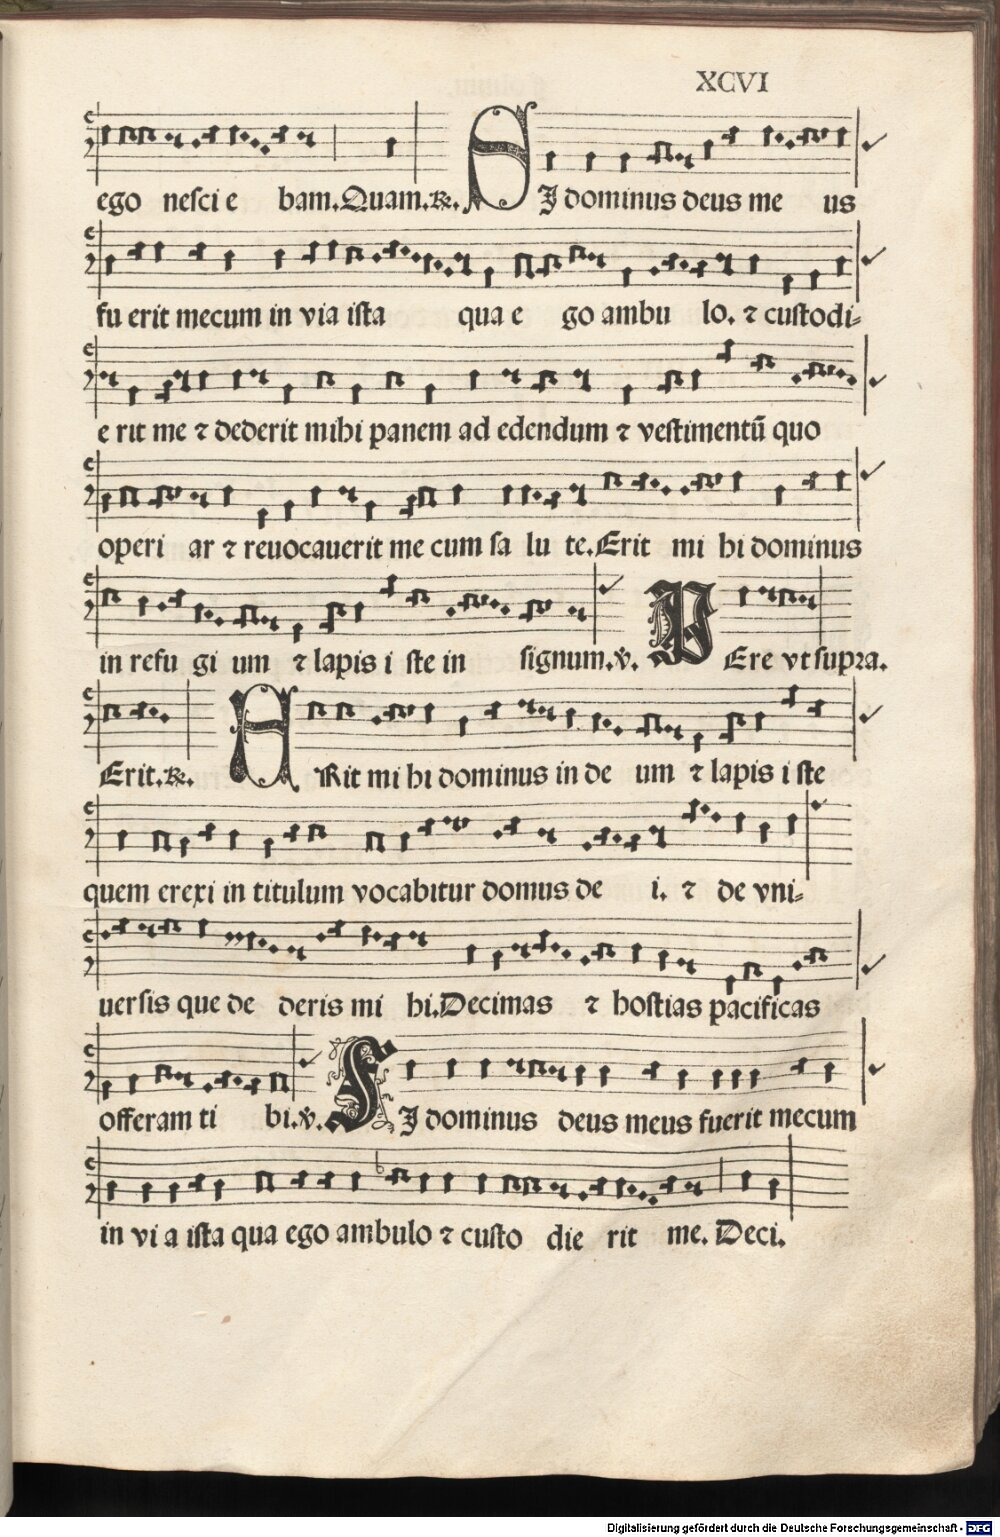 XCVI
ego nesci e bam. Quam. ℟. SI dominus deus me us
fu erit mecum in via ista qua e go ambu lo. ⁊ custodi⸗
e rit me ⁊ dederit mihi panem ad edendum ⁊ vestimentū quo
operi ar ⁊ reuocauerit me cum sa lu te. Erit mi hi dominus
in refu gi um ⁊ lapis i ste in signum. ℣. VEre vt supra.
Erit. ℟. ERit mi hi dominus in de um ⁊ lapis i ste
quem erexi in titulum vocabitur domus de i. ⁊ de vni⸗
uersis que de deris mi hi. Decimas ⁊ hostias pacificas
offeram ti bi. ℣. SI dominus deus meus fuerit mecum
in vi a ista qua ego ambulo ⁊ custo die rit me. Deci.
Digitalisierung gefördert durch die Deutsche Forschungsgemeinschaft - DFG